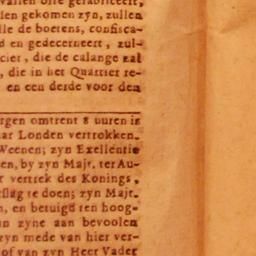 gekomen zyn, zullen
de boetens, confisca-
en gedecerneert, zul-
cier, die de calange zal
, die in het Quartier re-
en een derde voor den
rgen omtrent 8 uuren in
ar Londen vertrokken.
Weenen; zyn Exellentie
en, by zyn Majt. ter Au-
vertrek des Konings,
te doen; zyn Majt.
n, en betuigd ten hoog-
zyne aan bevoolen
zyn mede van hier ver-
of van zyn Heer Vader